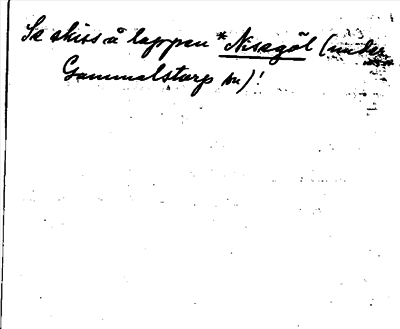 Se skiss å lappen *Nisagöl (under
Gammalstorp sn)!